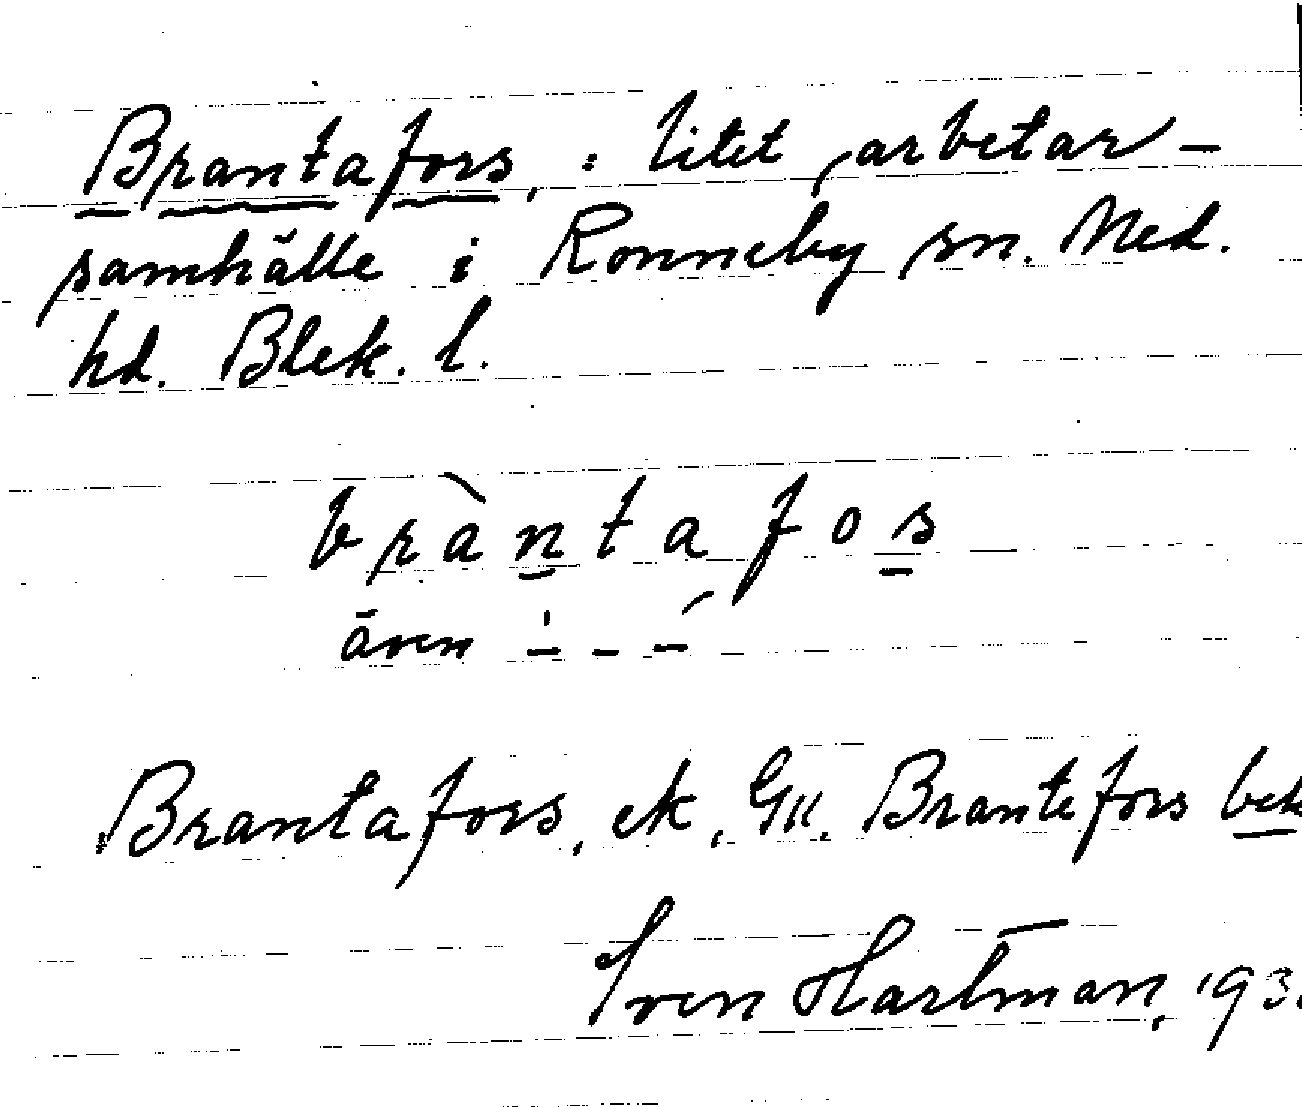 Brantafors, : litet arbetar-
samhälle i Ronneby sn. Med.
hd. Blek. l.
bràntafos
även
Brantafors, ek, GK. Brantefors bek
Sven Hartman, 193